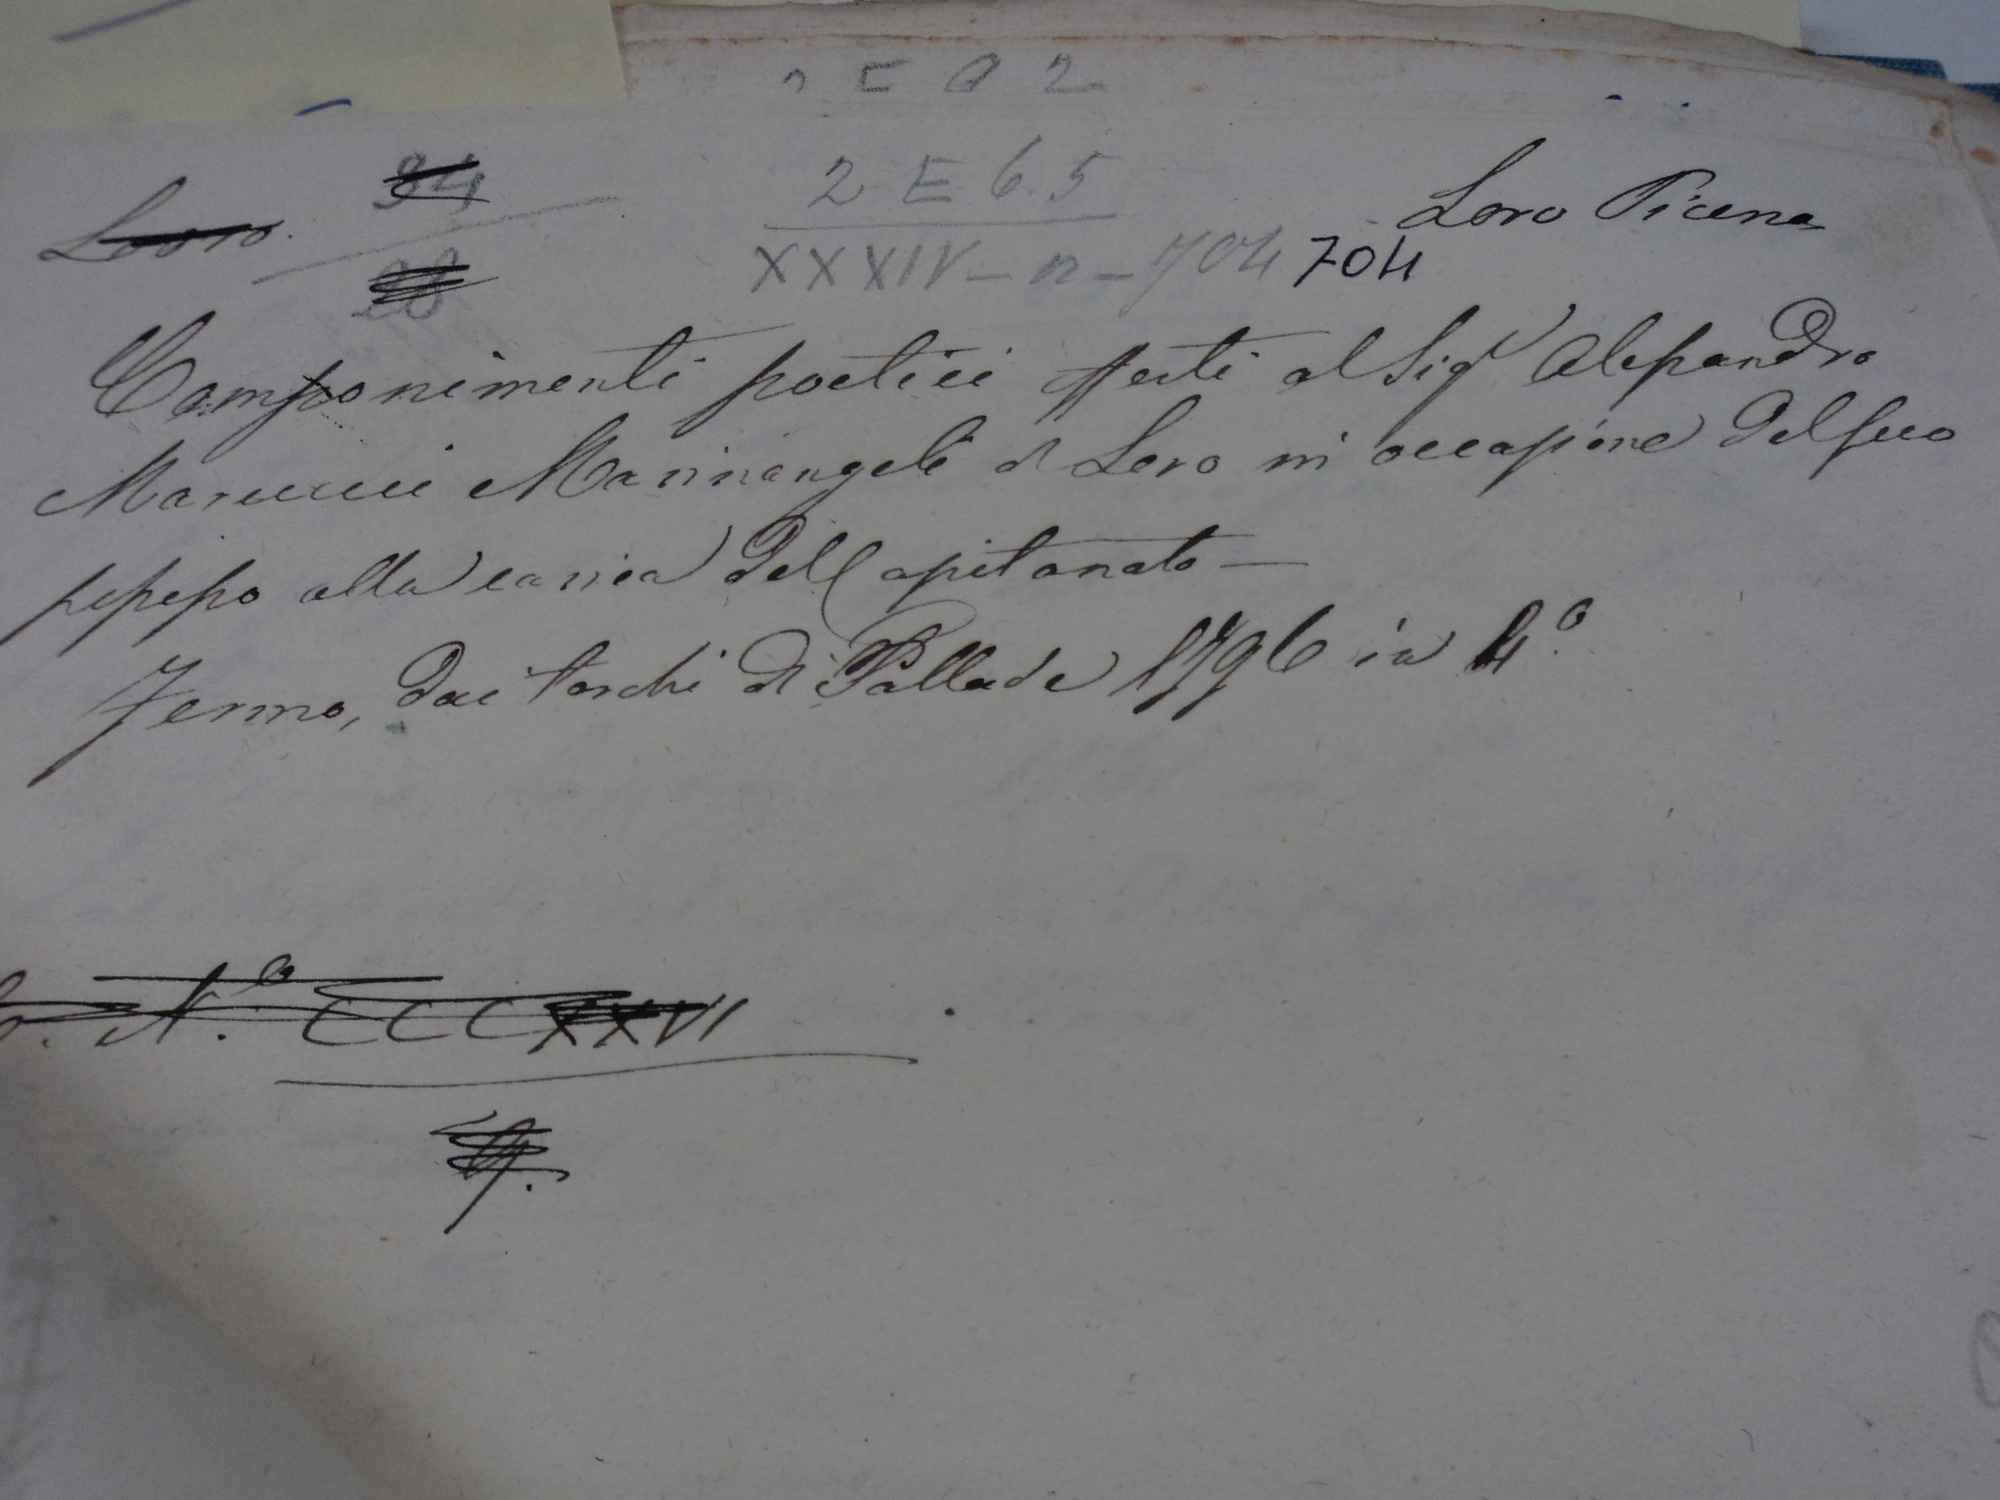 2 E 6 5
Loro 34
XXXIV - n - 704 704
Loro Piceno
Componimenti poetici offerti al Sigr Alessandro
Marcucci Marinangeli di Loro in occasione del suo
possesso alla carica del Capitanato —
Fermo, dai torchi di Pallade 1796 in 4.º
N.º CCCXXVI